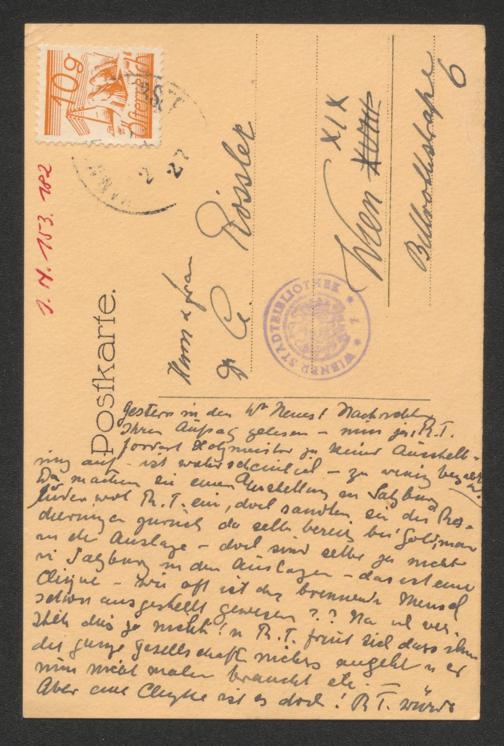 10g
Österreich
Postkarte.
J. N. 153.182
Herrn u Frau
Dr A. Rössler
XIX
Wien XVIII
Billrothstraße
6
WIENER STADTBIBLIOTHEK
Gestern in den Wr Neuest Nachrichten
Ihren Aufsatz gelesen – nun ja, R. T.
fordert Holzmeister zu keiner Ausstell-
ung auf – ist wahrscheinlich – zu wenig
Da machen sie eine Ausstellung in Salzburg
laden wol R. T. ein, doch sandten sie die Ra-
dierungen zurück da selbe bereits bei
in der Auslage – doch sind selbe ja nicht
in Salzburg in den Auslagen – das ist eine
Clique – wie oft ist der brennende Mensch
schon ausgestellt gewesen ?? Na ich ver-
steh dies ja nicht! u R. T. freut sich dass ihm
die ganze Gesellschaft nichts angeht u er
nun nicht malen braucht etc. –
Aber eine Clique ist es doch! R. T. würde